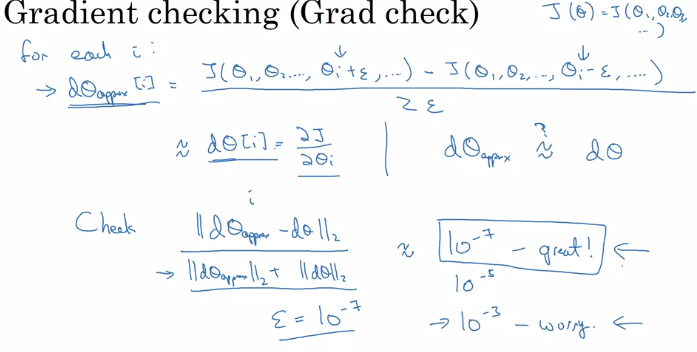 Gradient checking (Grad check)
J(θ) = J(θ₁, θ₂, θ₃, ...)
for each i:
→ dθapprox[i] = J(θ₁, θ₂, ..., θᵢ+ε, ...) - J(θ₁, θ₂, ..., θᵢ-ε, ...) / 2ε
≈ dθ[i] = ∂J/∂θᵢ | dθapprox ≈? dθ
Check ‖dθapprox - dθ‖₂ / ‖dθapprox‖₂ + ‖dθ‖₂ ≈ 10⁻⁷ - great! ←
10⁻⁵
ε = 10⁻⁷ → 10⁻³ - worry. ←